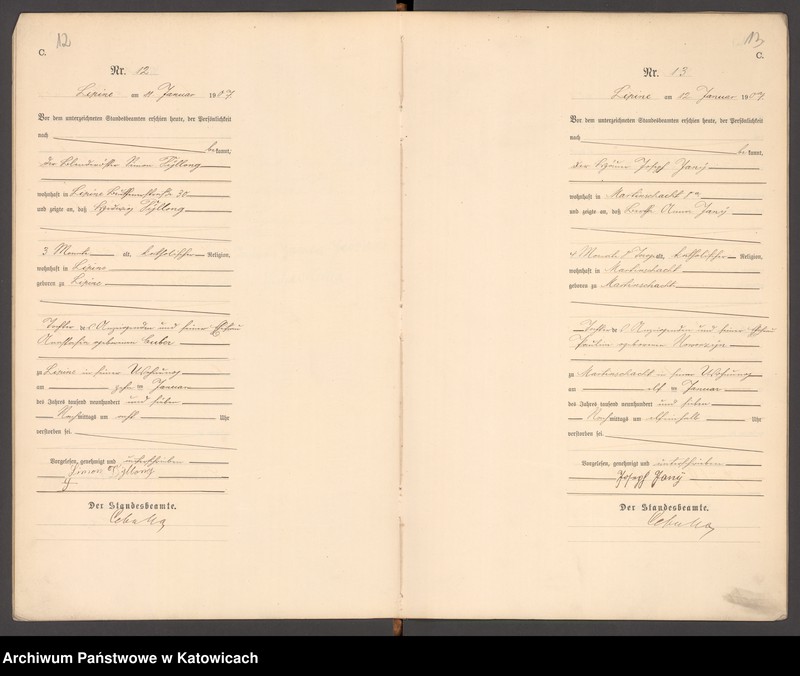 12
C.
Nr. 12
Lipine am 11 Januar 1907
Vor dem unterzeichneten Standesbeamten erschien heute, der Persönlichkeit
nach
bekannt,
der Simon
wohnhaft in Lipine 30
und zeigte an, daß Hedwig
3 Monate alt, katholischer Religion,
wohnhaft in Lipine
geboren zu Lipine
Tochter des Anzeigenden und seiner Ehefrau
geborenen
zu Lipine in seiner Wohnung
am zehn ten Januar
des Jahres tausend neunhundert und sieben
Nachmittags um acht Uhr
verstorben sei.
Vorgelesen, genehmigt und unterschrieben
Simon
Der Standesbeamte.
13
C.
Nr. 13
Lipine am 12 Januar 1907
Vor dem unterzeichneten Standesbeamten erschien heute, der Persönlichkeit
nach
bekannt,
der Häuer Joseph Jany
wohnhaft in Martinschacht 8a
und zeigte an, daß Anna Jany
4 Monate alt, katholischer Religion,
wohnhaft in Martinschacht
geboren zu Martinschacht
Tochter des Anzeigenden und seiner Ehefrau
Pauline geborenen
zu Martinschacht in seiner Wohnung
am elf ten Januar
des Jahres tausend neunhundert und sieben
Nachmittags um Uhr
verstorben sei.
Vorgelesen, genehmigt und unterschrieben
Joseph Jany
Der Standesbeamte.
Archiwum Państwowe w Katowicach